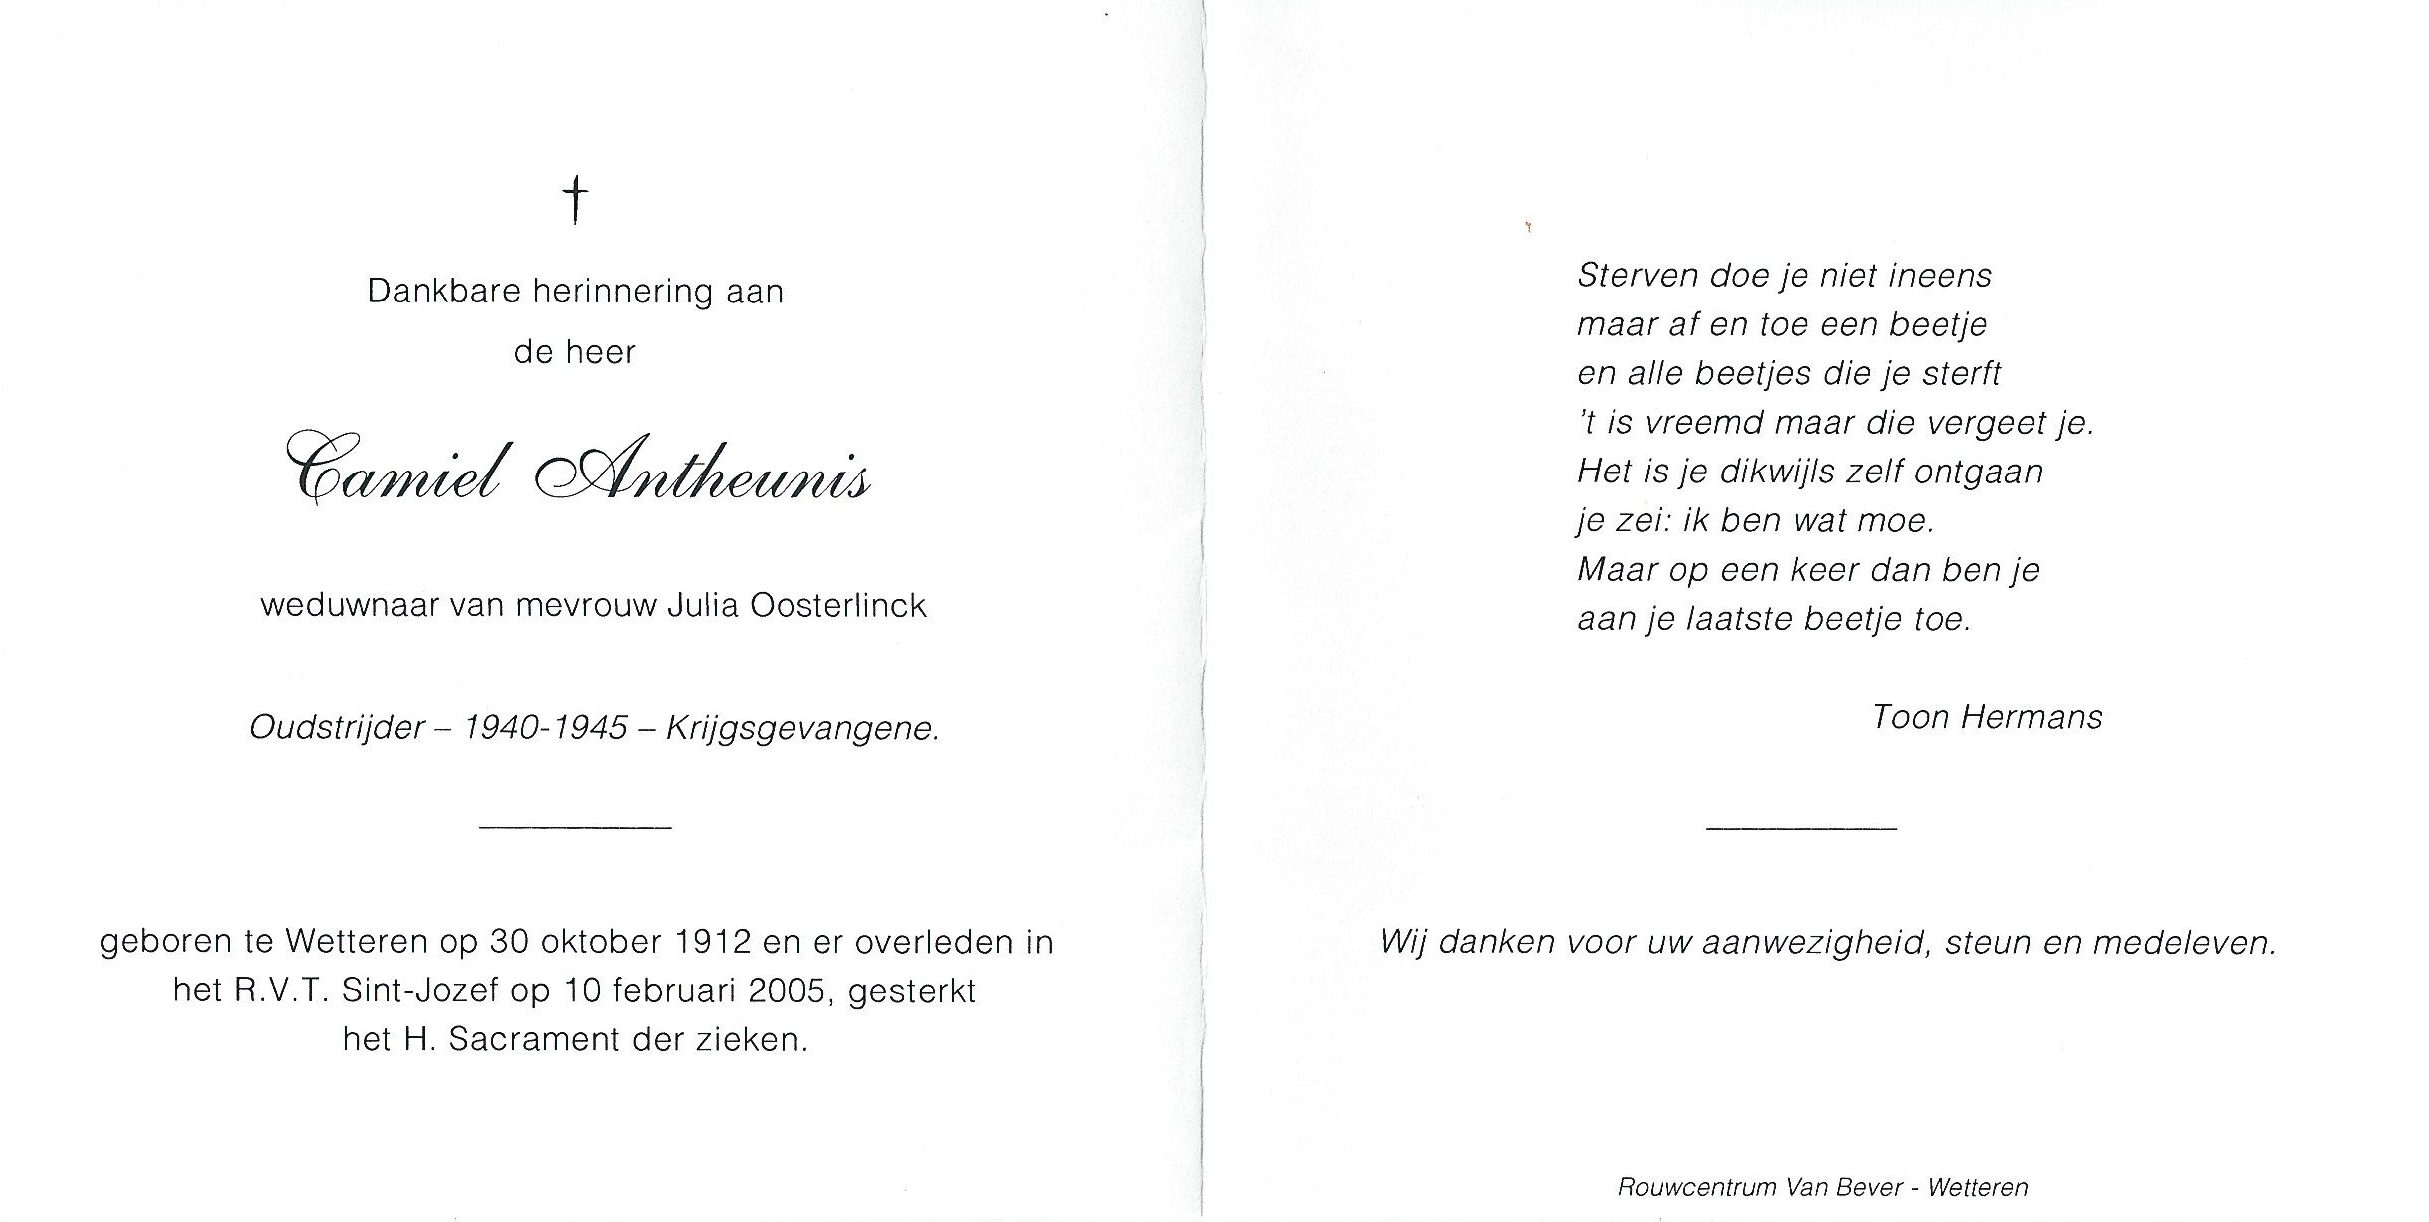 Dankbare herinnering aan
de heer
Camiel Antheunis
weduwnaar van mevrouw Julia Oosterlinck
Oudstrijder – 1940-1945 – Krijgsgevangene.
geboren te Wetteren op 30 oktober 1912 en er overleden in
het R.V.T. Sint-Jozef op 10 februari 2005, gesterkt
het H. Sacrament der zieken.
Sterven doe je niet ineens
maar af en toe een beetje
en alle beetjes die je sterft
't is vreemd maar die vergeet je.
Het is je dikwijls zelf ontgaan
je zei: ik ben wat moe.
Maar op een keer dan ben je
aan je laatste beetje toe.
Toon Hermans
Wij danken voor uw aanwezigheid, steun en medeleven.
Rouwcentrum Van Bever - Wetteren